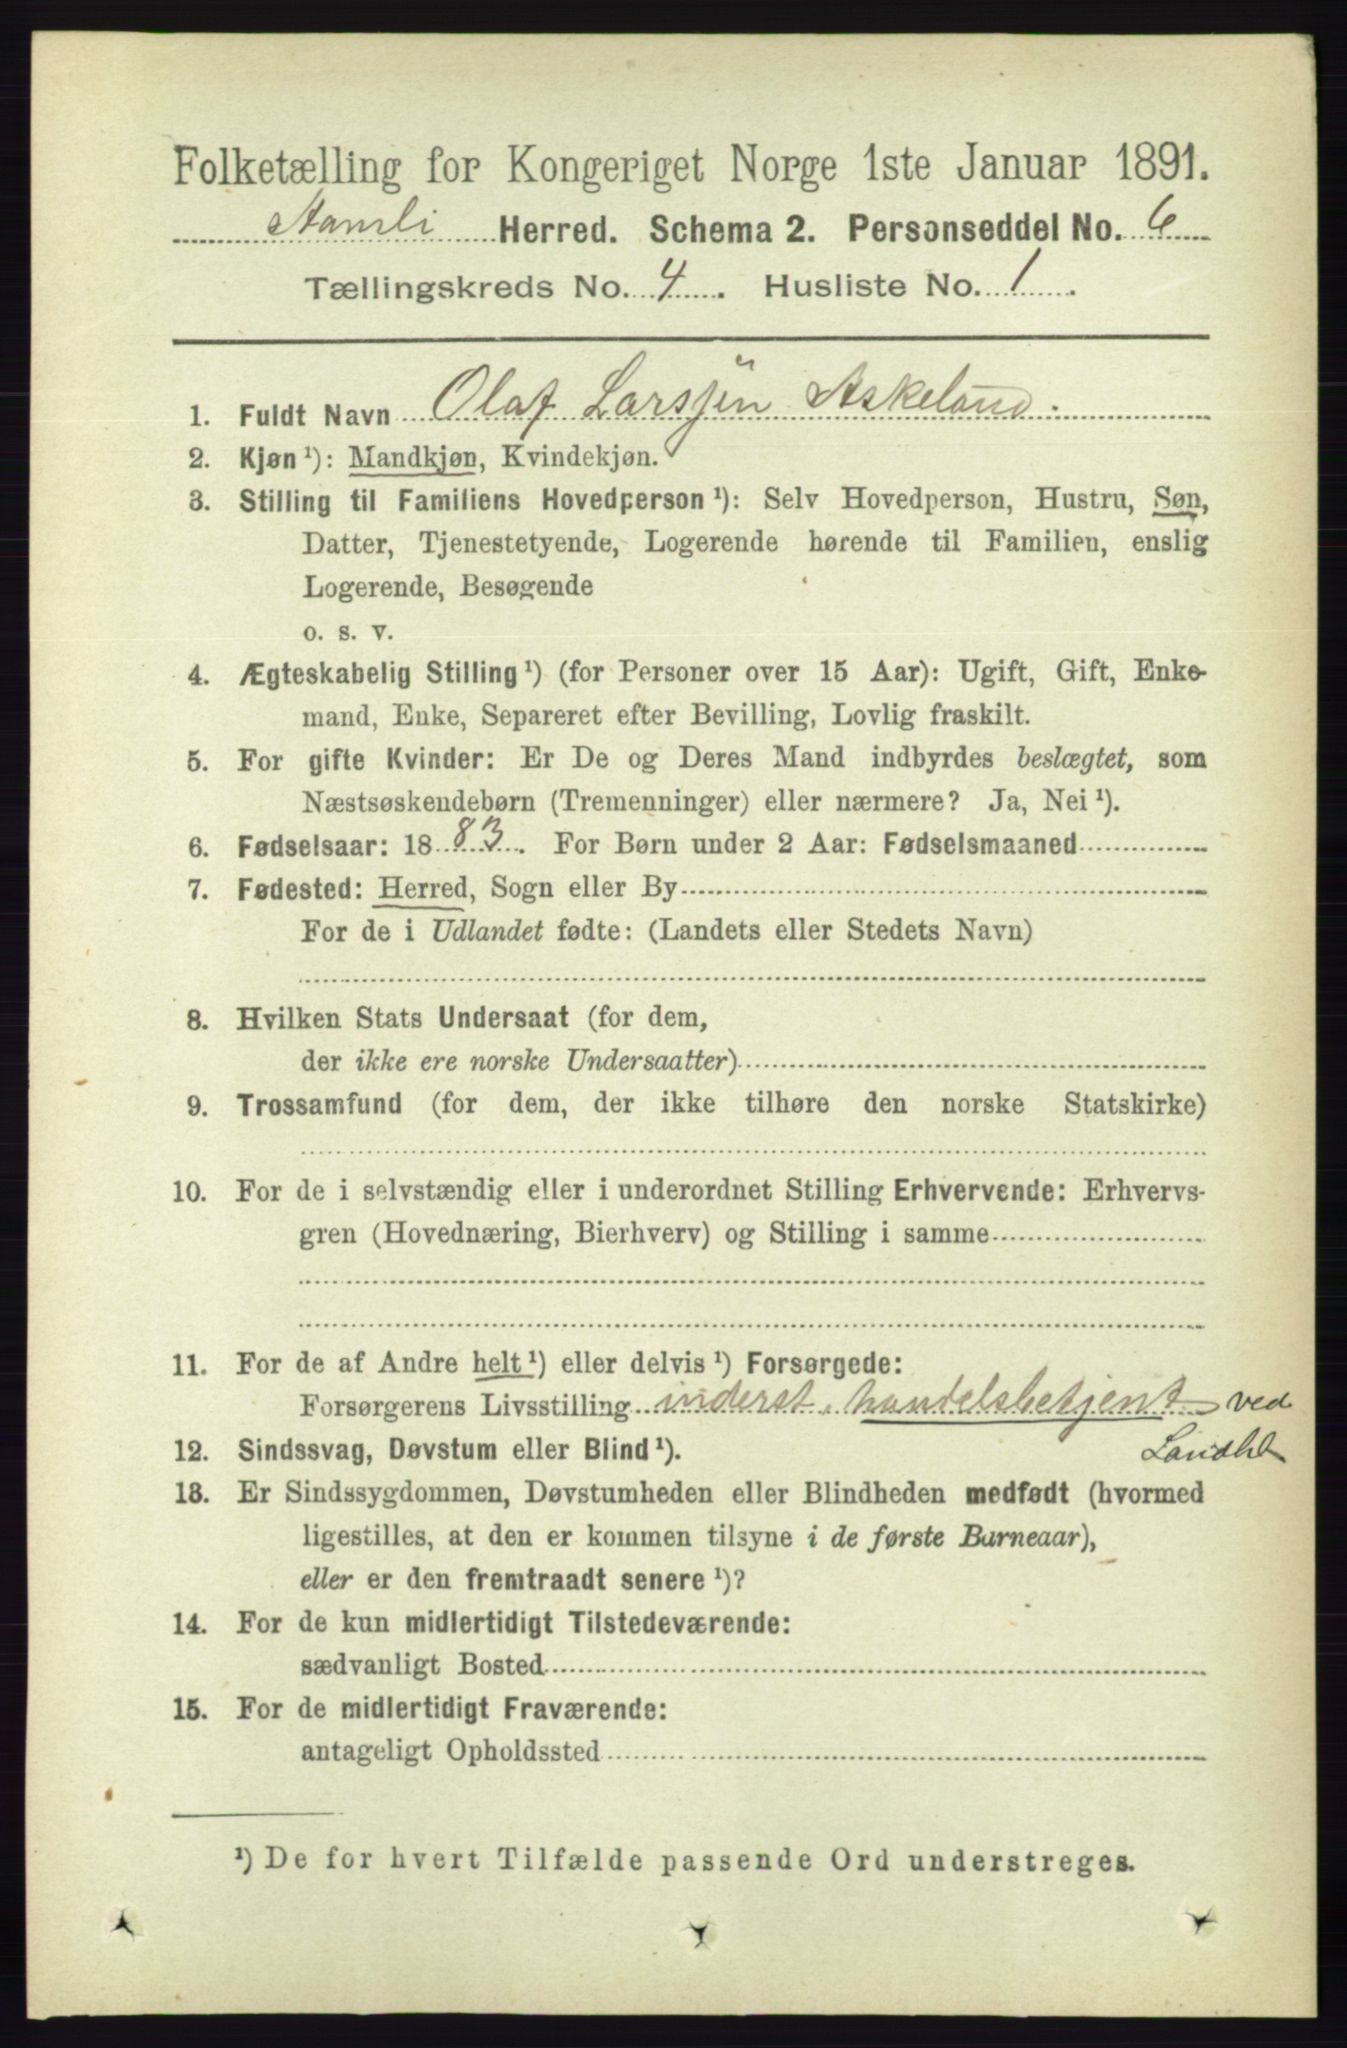 Folketælling for Kongeriget Norge 1ste Januar 1891.
Aamli Herred. Schema 2. Personseddel No. 6
Tællingskreds No. 4. Husliste No. 1.
1. Fuldt Navn Olaf Larssen Askeland.
2. Kjøn ¹): Mandkjøn, Kvindekjøn.
3. Stilling til Familiens Hovedperson ¹): Selv Hovedperson, Hustru, Søn,
Datter, Tjenestetyende, Logerende hørende til Familien, enslig
Logerende, Besøgende
o. s. v.
4. Ægteskabelig Stilling ¹) (for Personer over 15 Aar): Ugift, Gift, Enke-
mand, Enke, Separeret efter Bevilling, Lovlig fraskilt.
5. For gifte Kvinder: Er De og Deres Mand indbyrdes beslægtet, som
Næstsøskendebørn (Tremenninger) eller nærmere? Ja, Nei ¹).
6. Fødselsaar: 1883. For Børn under 2 Aar: Fødselsmaaned
7. Fødested: Herred, Sogn eller By
For de i Udlandet fødte: (Landets eller Stedets Navn)
8. Hvilken Stats Undersaat (for dem,
der ikke ere norske Undersaatter)
9. Trossamfund (for dem, der ikke tilhøre den norske Statskirke)
10. For de i selvstændig eller i underordnet Stilling Erhvervende: Erhvervs-
gren (Hovednæring, Bierhverv) og Stilling i samme
11. For de af Andre helt ¹) eller delvis ¹) Forsørgede:
Forsørgerens Livsstilling inderst, handelsbetjent ved
Landhl
12. Sindssvag, Døvstum eller Blind ¹).
13. Er Sindssygdommen, Døvstumheden eller Blindheden medfødt (hvormed
ligestilles, at den er kommen tilsyne i de første Barneaar),
eller er den fremtraadt senere ¹)?
14. For de kun midlertidigt Tilstedeværende:
sædvanligt Bosted
15. For de midlertidigt Fraværende:
antageligt Opholdssted
¹) De for hvert Tilfælde passende Ord understreges.